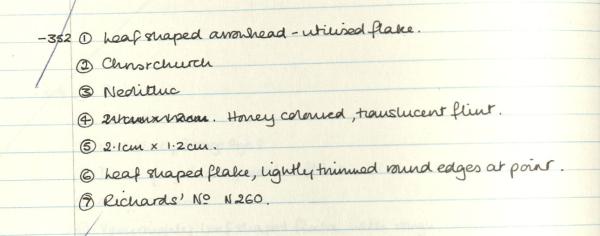 -352 ① Leaf shaped arrowhead - utilised flake.
② Christchurch
③ Neolithic
④ Honey coloured, translucent flint.
⑤ 2.1cm x 1.2cm.
⑥ Leaf shaped flake, lightly trimmed round edges at point.
⑦ Richards' No N260.